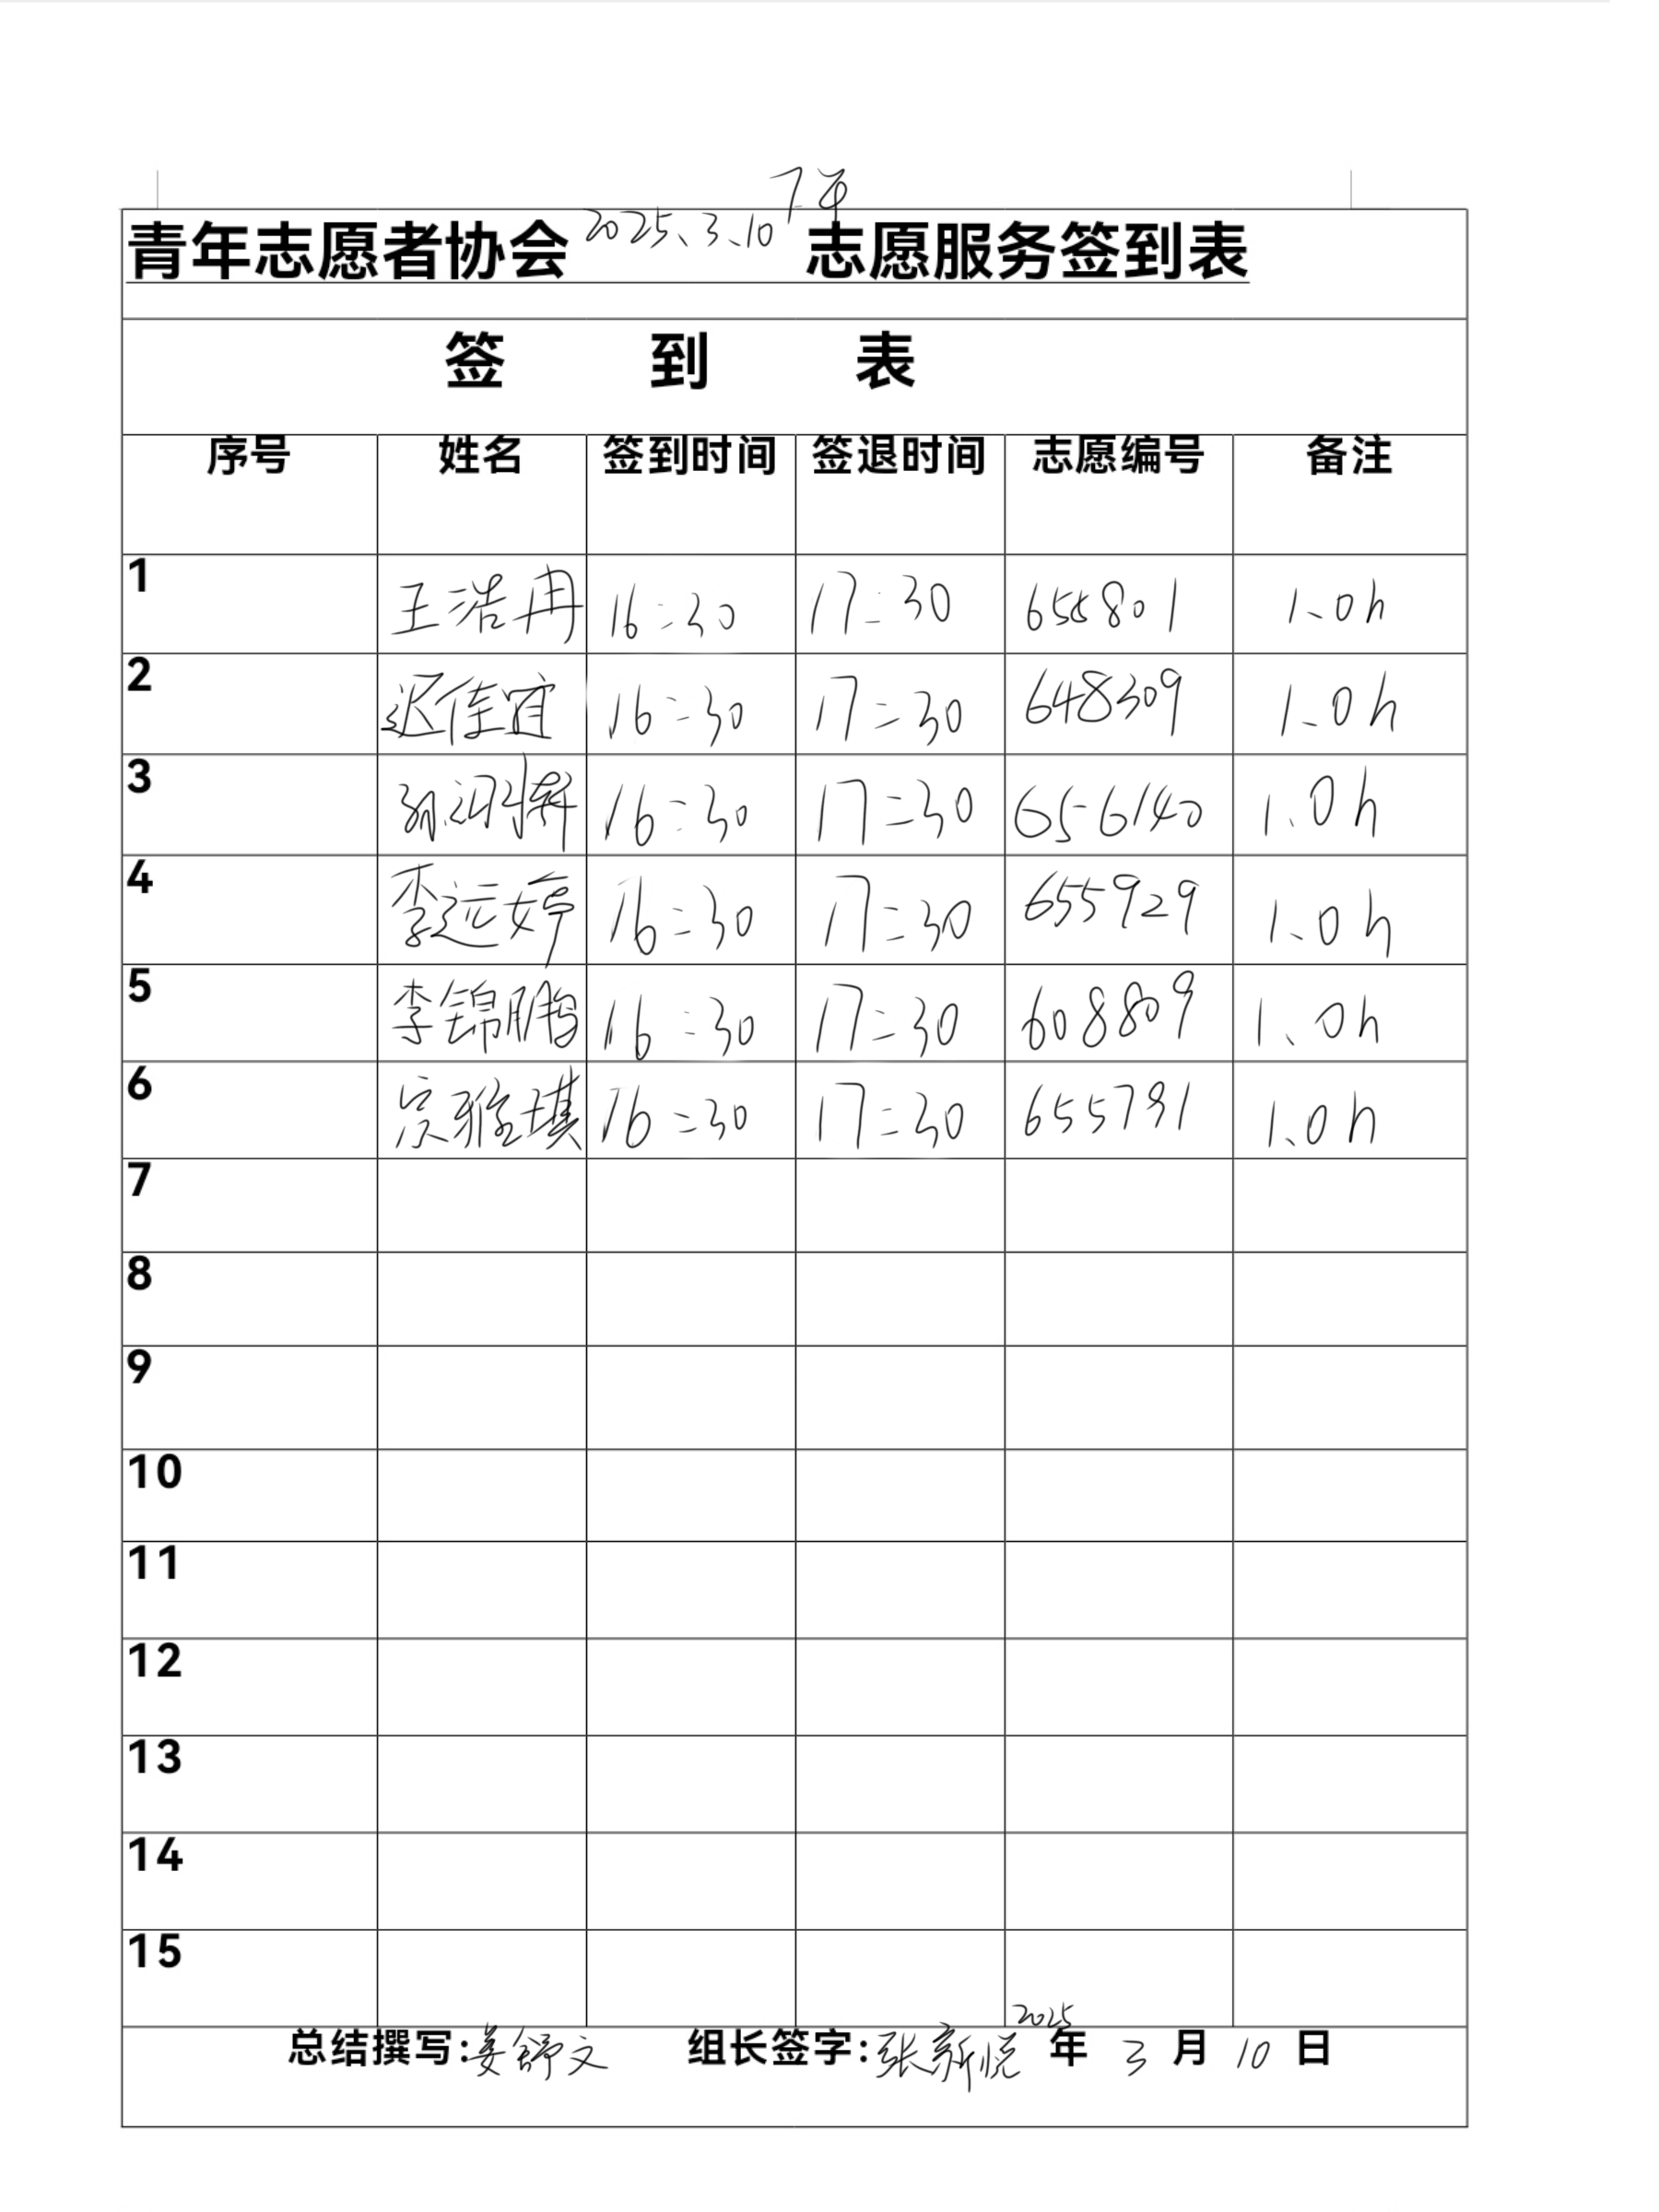 下午
青年志愿者协会 2025.3.10 志愿服务签到表
签 到 表
序号 姓名 签到时间 签退时间 志愿编号 备注
1 王浩冉 16:30 17:30 1.0h
2 迟佳宜 16:30 17:30 648309 1.0h
3 16:30 17:30 656140 1.0h
4 李远婷 16:30 17:30 655929 1.0h
5 李锦鹏 16:30 17:30 608809 1.0h
6 宗雅琪 16:30 17:30 655791 1.0h
7
8
9
10
11
12
13
14
15
总结撰写:姜舒文 组长签字:张新悦 2025年 3 月 10 日